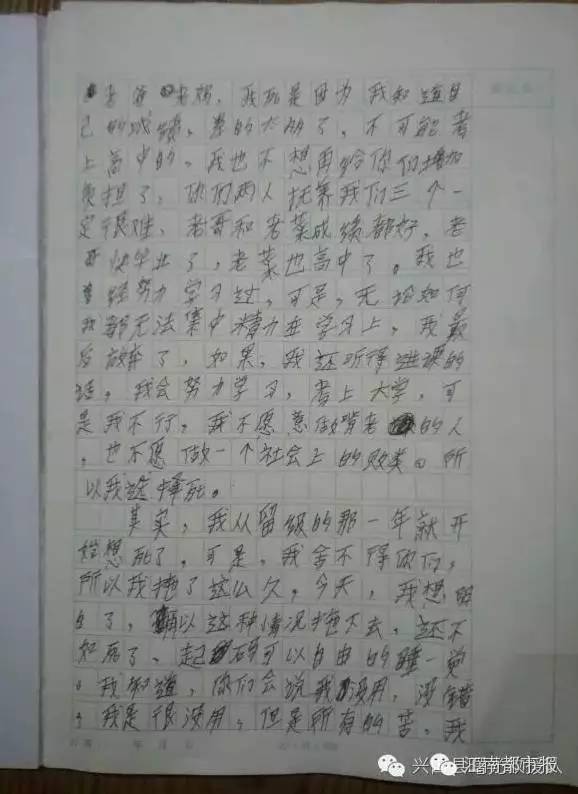 老爸老妈，我就是因为我知道自
己的成绩，差的太多了，不可能考
上高中的，我也不想再给你们增加
负担了，你们两人抚养我们三个一
定很难，老哥和老菜成绩都好，老
哥快毕业了，老菜也高中了。我也
经努力学习过，可是，无论如何
我都无法集中精力在学习上，我最
后放弃了，如果，我还听得进课的
话，我会努力学习，考上大学，可
是我不行，我不愿意做啃老的人
，也不愿做一个社会上的败类。所
以我选择死。
其实，我从留级的那一年就开
始想死了，可是，我舍不得你们，
所以我拖了这么久，今天，我想明
白了，以这种情况拖下去，还不
如死了，起码可以自由的睡一觉
。我知道，你们会说我没用，没错
，我是很没用，但是所有的苦，我
年 月 日
江南都市报